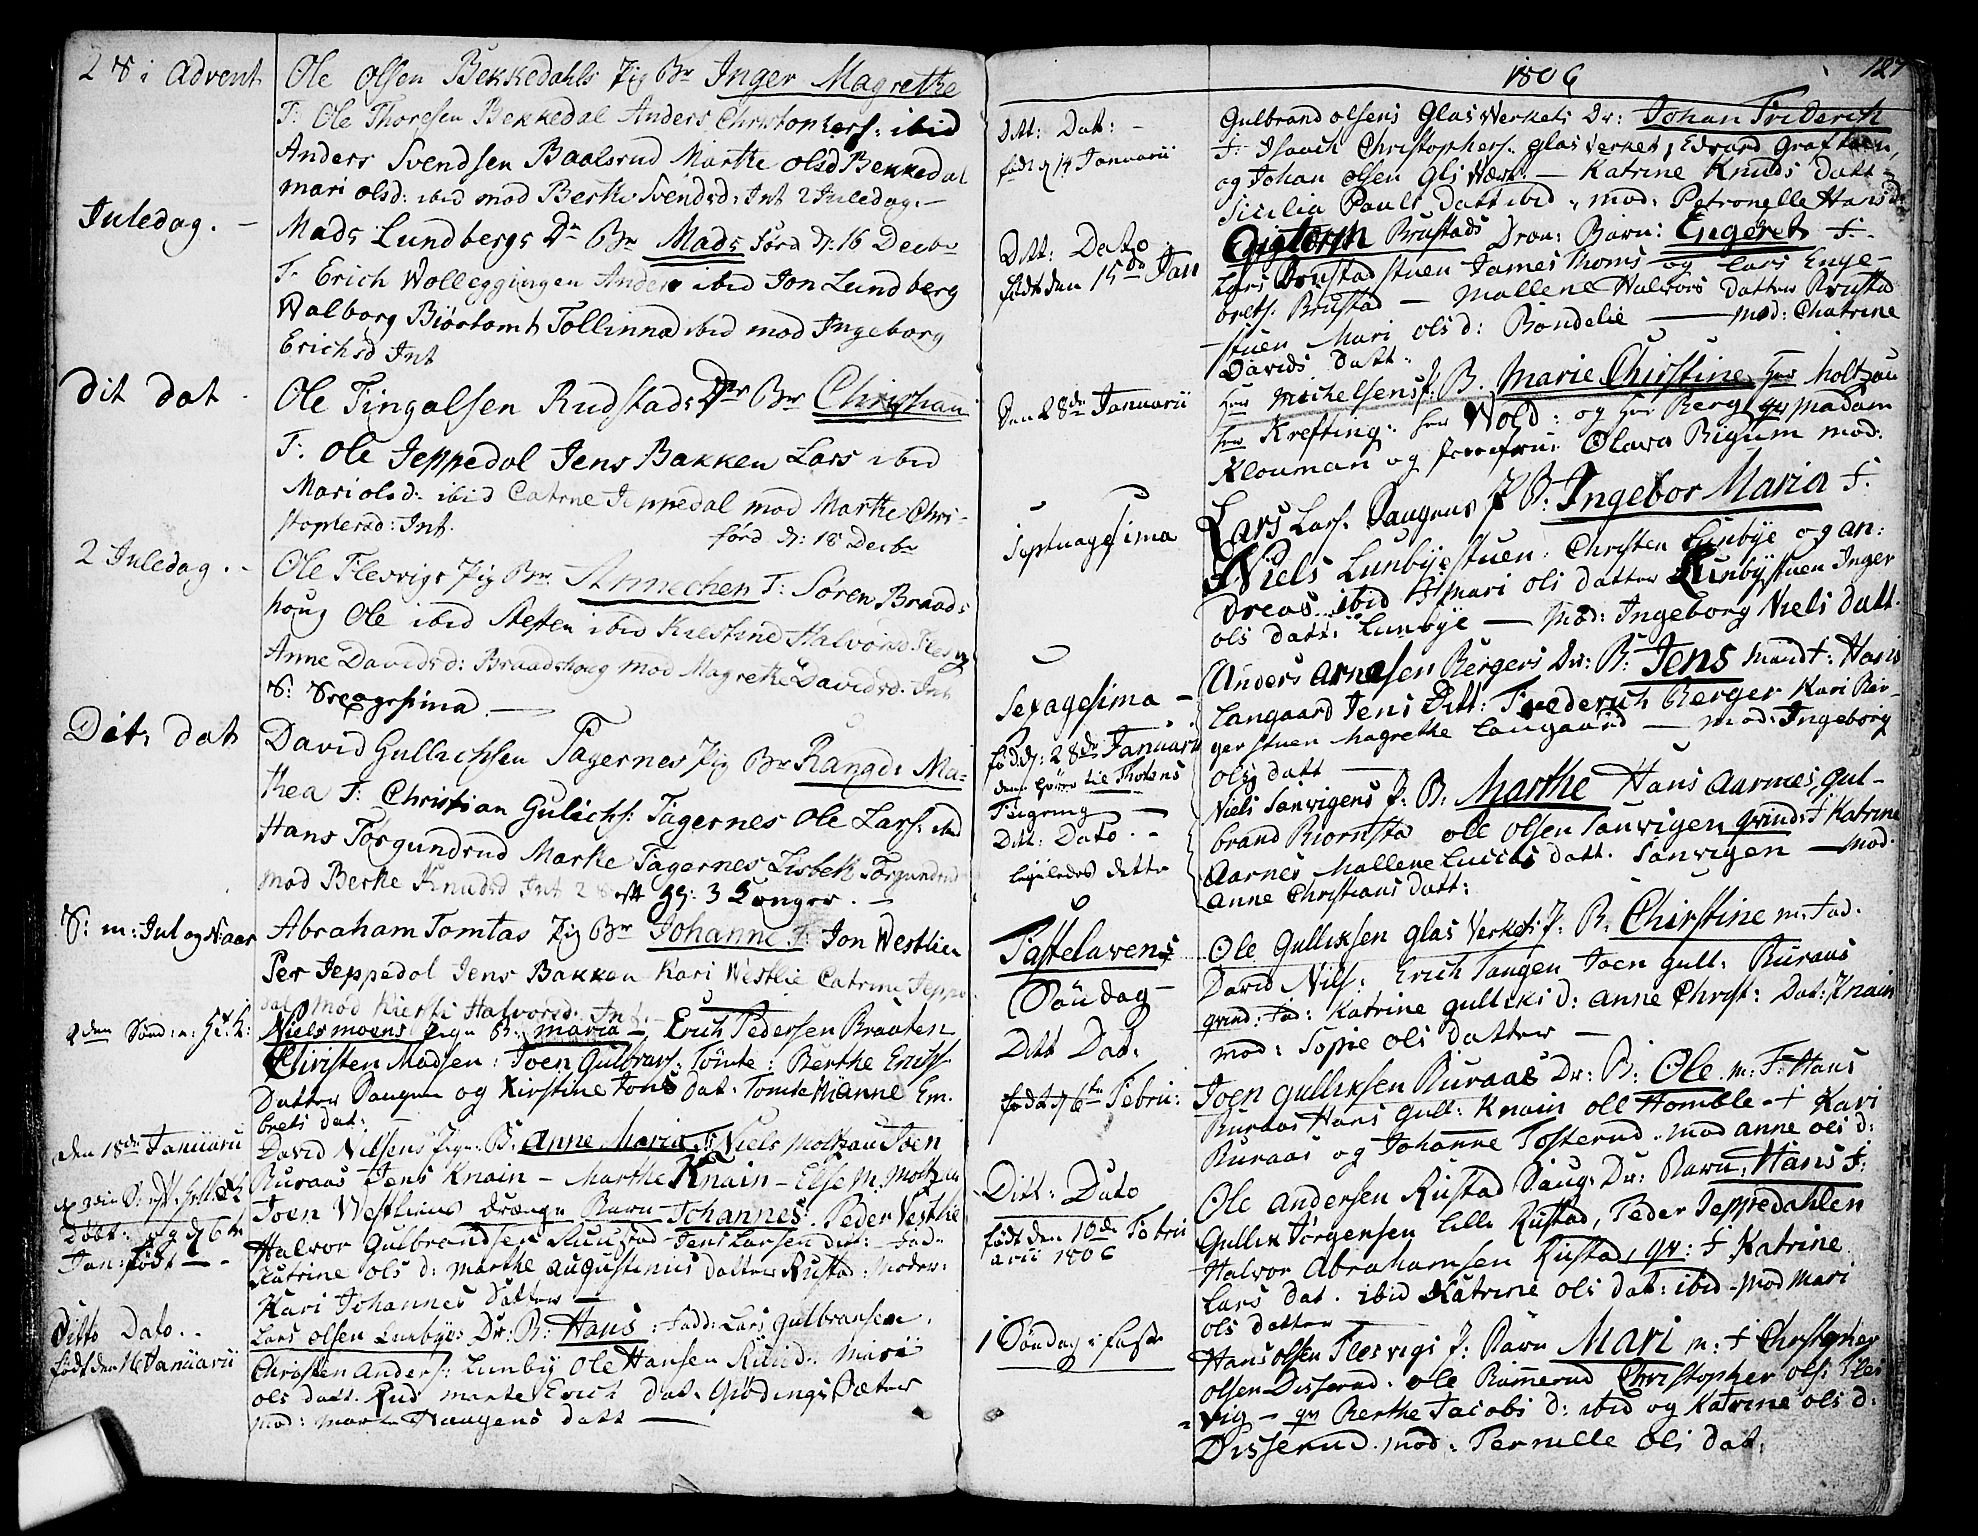 2 S i Advent
Ole Olsen Bekkedahls Pig Bn Inger Magrethe
F: Ole Thoresen Bekkedal Anders Christophers: ibid
Anders Svendsen Baalsrud Marthe olsd Bekkedal
mari olsd: ibid mod Berthe Svendsd: Int 2 Juledag. —
Juledag. —
Mads Lundbergs Dr Bn Mads förd d: 16 Decbr
F: Erich Wolleggingen Anders ibid Jon Lundberg
Walborg Biörtomt Tollinna ibid mod Ingeborg
Erichsd Int
Dit dat
Ole Tingalsen Rudstads Dr Bn Christian
F: Ole Jeppedal Jens Bakken Lars ibid
Mari olsd: ibid Catrine Jeppedal mod Marthe Chri-
stophersd: Int.
förd d: 18 Decbr
2 Juledag. -
Ole Flesvigs Pig Bn Annechen F: Sören Braads
houg Ole ibid Steffen ibid Kirstine Halvorsd Flesvig
Anne Davidsd: Braadshoug mod Magrethe Davidsd. Int
S: Sexagesima —
Dit, dat
David Gullichsen Tagernes Pig Bn Rangdi Ma=
thea F: Christian Gulichs: Tagernes Ole Lars: ibid
Hans Torgundrud Marthe Tagernes Lisbeth Torgundrud
mod Berthe Knudsd Int 2 S 3 Songer. —
S: m: Jul og N: aar
Abraham Tomtas Pig Bn Johanne F: Jon Westlien
Per Jeppedal Jens Bakken Kari Westlie Catrine Jeppe
dal mod Kiersti Halvorsd. Int. —
Niels moens B: maria — Erich Pedersen Braaten
Christen Madsen: Joen Gulbrans: Tömte: Berthe Erichs
Datter Saugen og Kirstine Jons dat: Tomte M: anne Em.
brets dat:
den 18de Januarii
David Nielsens Pige: B: Anne Maria, F: Niels Moltzau Joen
Ruraas Jens Knain — Marthe Knain — Else M: Moltzau
Joen Westliens drænge Barn Johannes. Peder Vestlie
döbt: og d 6te
Halvor Gulbrandsen Ruustad Jens Larsen dito: — Fad.
Jan: födt —
Katrine ols d: marthe augustinus datter Rustad: Moder:
Kari Johannes Datter —
Ditto Dato. -
Lars olsen Lunbyes Dr: B: Hans: Fadd: Lars gulbransen,
födt den 16 Januarii
Christen anders: Lunby Ole Hansen Ruud: Mari
ols datt. Rud marte Erich dat: Giödings Sæter
mod: marte Haagens datt —
127
1806
Ditt: Dat: —
födt d 14 Januarii
Gulbrand olsens Glas Verkets Dr: Johan Friderich
F: Isaach Christophers. glas verket, Edvard Graftaen,
og Johan olsen Gls Værk — Katrine Knuds datt —
Sicilia Pauls datt ibid, mod: Petronelle Hans d:
Ditt: Dato
födt den 15de Jan
Brustads Dren: Barn: Engebret F:
Lars Brustadstuen James Thoms og Lars Enge-
brets. Brustad — Mallene Halvors datter Brustad
stuen Mari ols d: Bondelie — mod: Chatrine
Davids datt:
Den 28de Januarii
Her Michelsens P. B. Marie Chirstine Her Moltzau
Her Krefting: her Wold: og her Berg qv: Madam
Klouman og Jomfrue Olava Bigum mod.
Septuagesima
Lars Lars. Saugens P B: Ingebor Maria F:
Niels Lunbyestuen: Christen Lunbye og an:
dreas ibid Mari ols datter Lunbystuen Inger
ols datt: Lunbye — mod: Ingeborg Niels datt.
Sexagesima —
födt d: 28de Januarii
denne hörer til Thotens
Tingring —
Anders arnesen Bergers Dr: B: Jens mandf: Hans
Langaard Jens Ditt: Frederich Berger Kari Ber-
gerstuen Magrethe Langaard — mod: Ingeborg
ols datt —
Ditt: Dato. -
ligeledes dette
Niels Sanvigens P. B. Marthe Hans aarnes, gul-
brand Biornsta ole olsen Sanvigen qvind: F Katrine
Aarnes Mallene Lucies datt. Sanvigen — mod.
anne Christians datt:
Fastelavens
Söndag —
Ole Gulliksen glas Verkets P. B. Chirstine m: Fad.
David Nils: Erich Tangen Joen gull: Ruraas
qvind: Fad: Katrine gulliks d: anne Christ: Dat: Knain
mod: Sopie ols datter —
Ditt Dat:
födt d 6te Febru:
Joen gulliksen Ruraas Dr: B: Ole. m: F: Hans
Ruraas Hans gull: Knain ole Homble — F Kari
Ruraas og Johanne Tosterud. mod anne ols d:
Ditt: Dato
födt den 10de Febru
arii 1806
Ole andersen Rustad Saug: Dr: Barn, Hans F:
Gullik Jörgensen Lille Rustad, Peder Jeppedahlen
Halvor Abrahamsen Rustad, qv: F Katrine
Lars dat. ibid Katrine ols dat: ibid — mod mari
ols datter —
1 Söndag i faste
Hans olsen Flesvigs P: Barn Mari m: F Christopher
olsen Disserud. ole Rammerud Christopher ols: Fles
vig — qv Berthe Jacobs d: ibid og Katrine ols d:
Disserud. mod: Pernille ols dat: